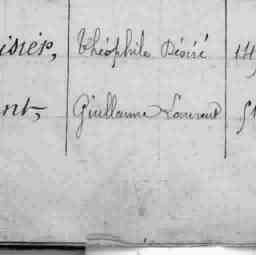 isier, Théophile Désiré 14
nt, Guillaume Laurent